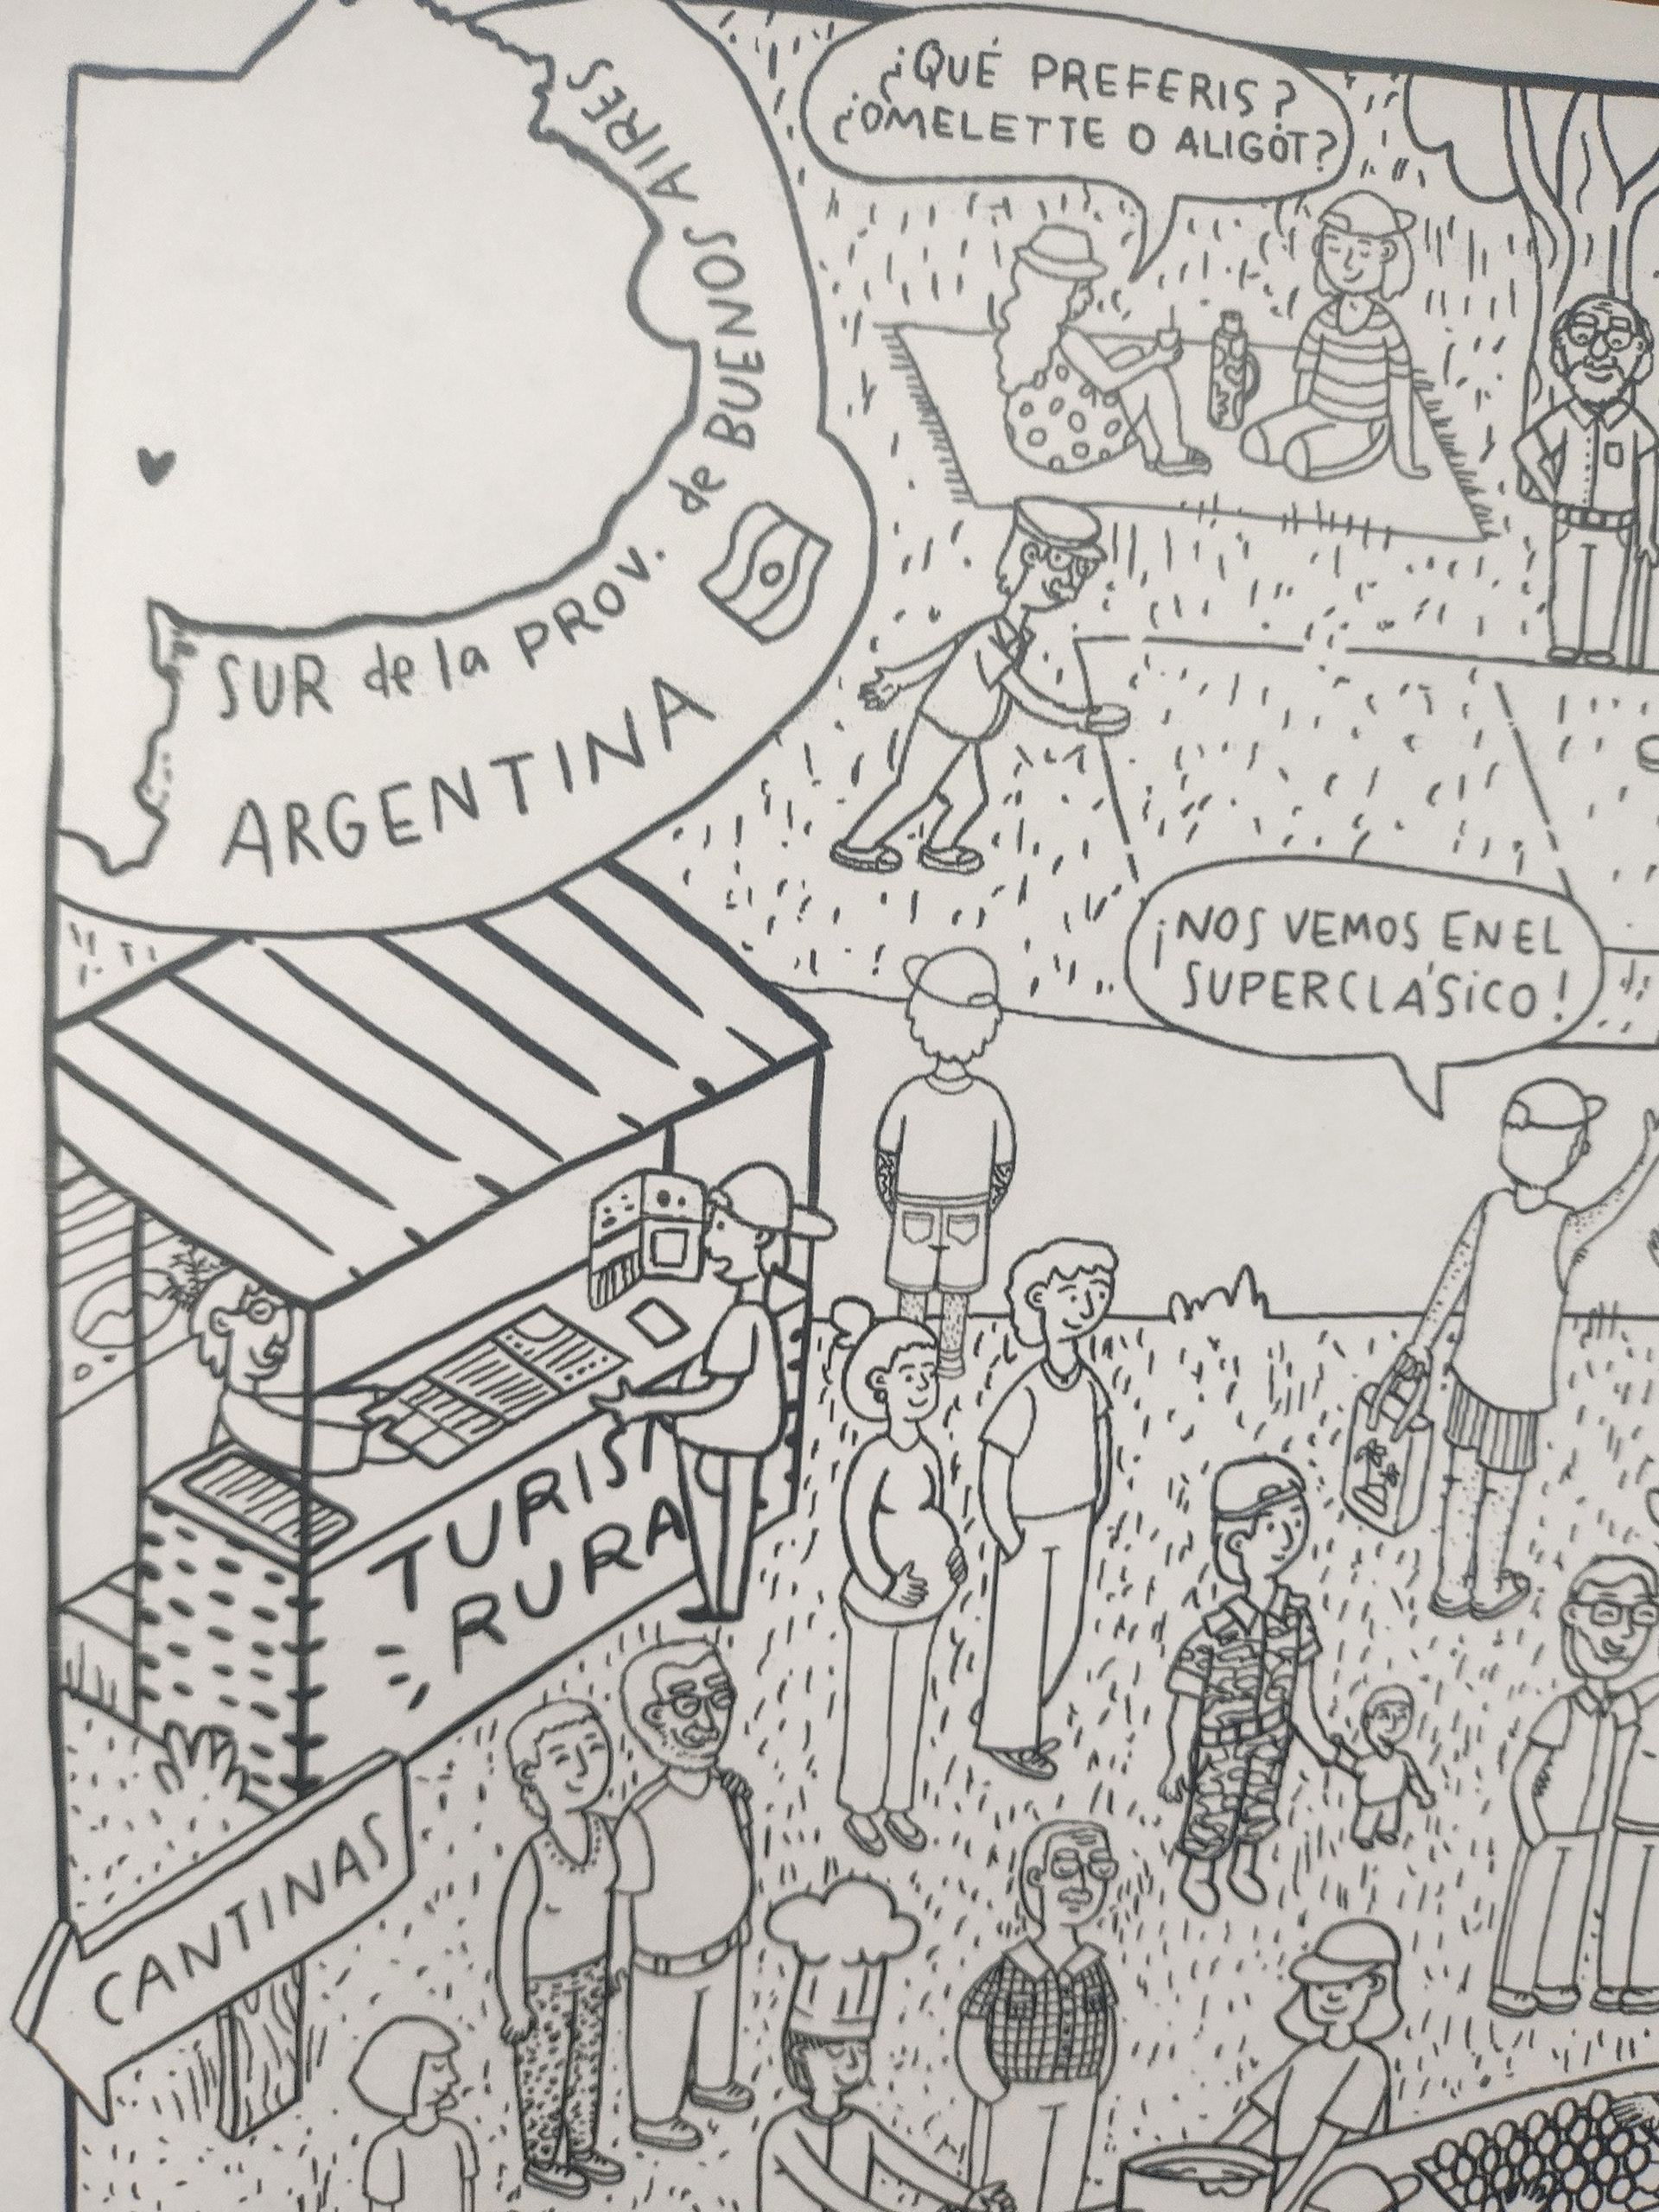 ¿QUÉ PREFERIS?
¿OMELETTE O ALIGÓT?
SUR de la PROV. de BUENOS AIRES
ARGENTINA
¡NOS VEMOS EN EL
SUPERCLÁSICO!
TURIS
RURA
CANTINAS